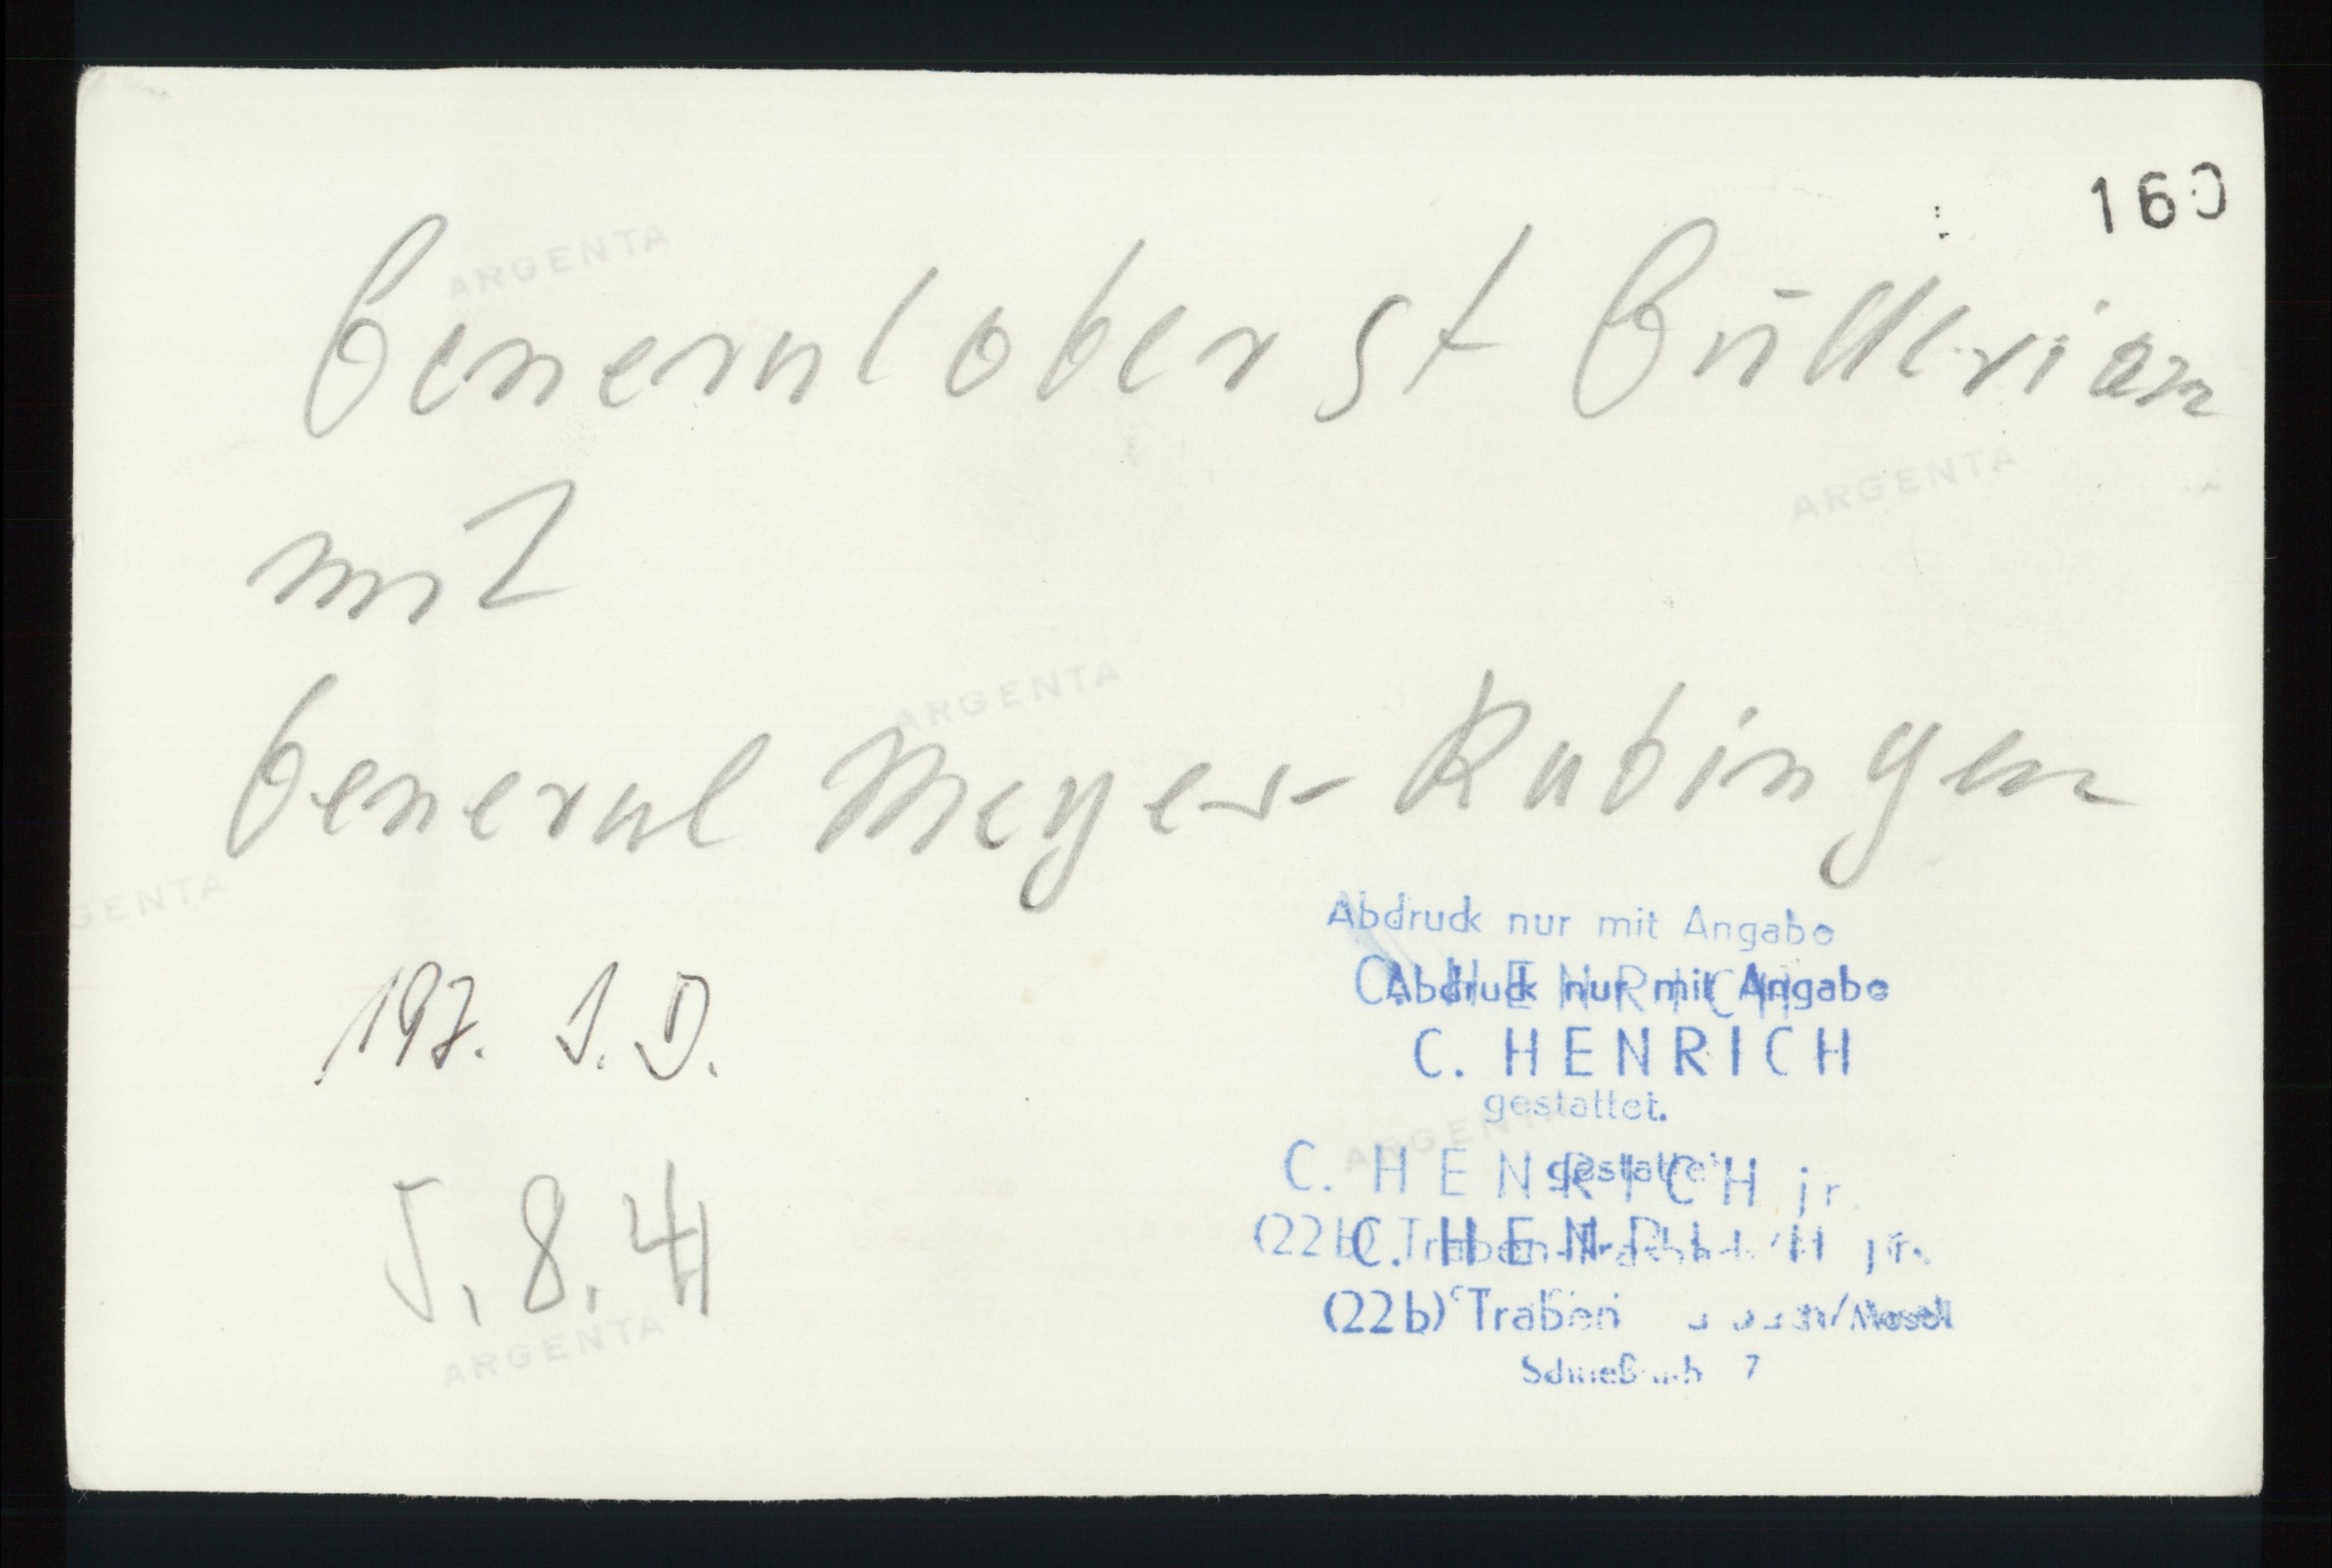 160
ARGENTA
Generaloberst Güllerian
ARGENTA
mit
ARGENTA
General Meyer-Rabingen
GENTA
Abdruck nur mit Angabe
C. HENRICH
Abdruck nur mit Angabe
197. I.D.
C. HENRICH
gestattet.
ARGENTA
C. HENRICH jr.
gestattet
5.8.41
(22b) Traben
C. HENRICH jr.
(22b) Traben /Mosel
ARGENTA
7